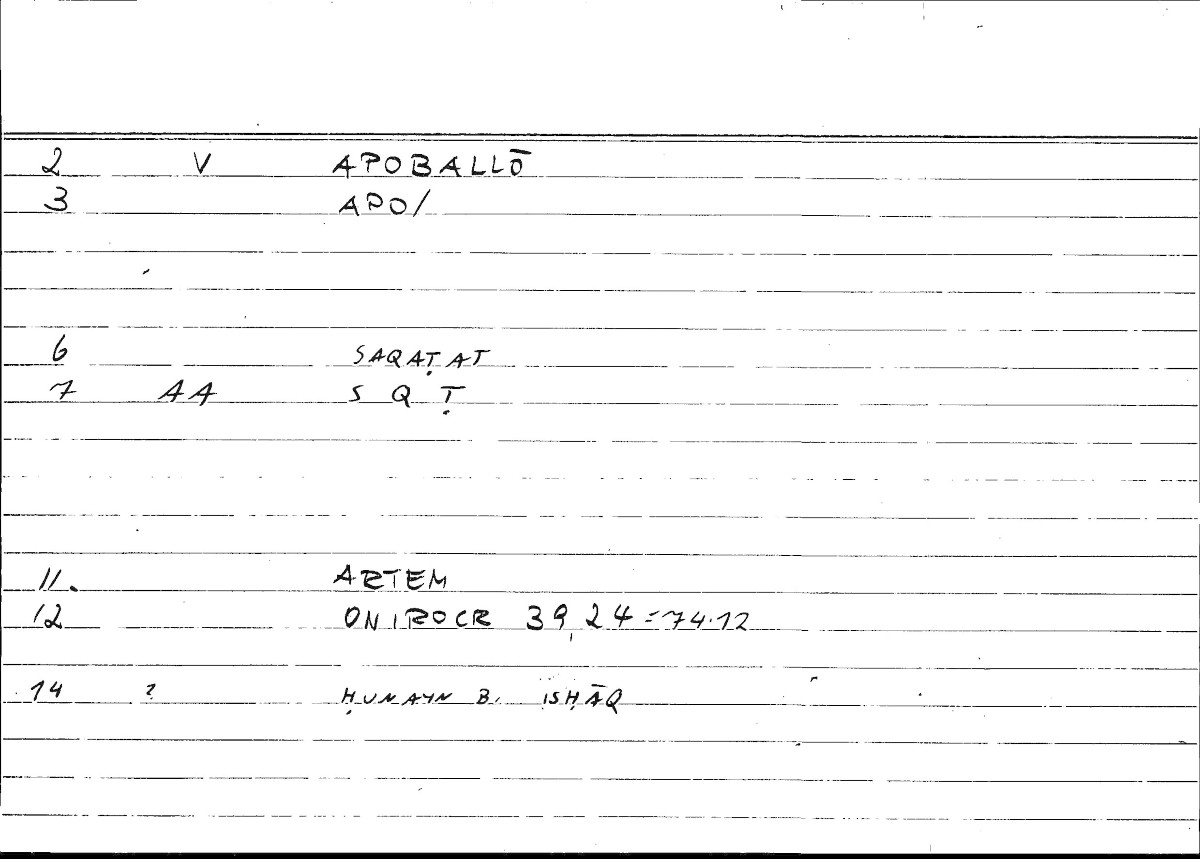 2 V APOBALLŌ
3 APO/
6 SAQAṬAT
7 AA S Q Ṭ
11. ARTEM
12 ONIROCR 39,24=74.12
14 ? ḤUNAYN B. ISḤĀQ